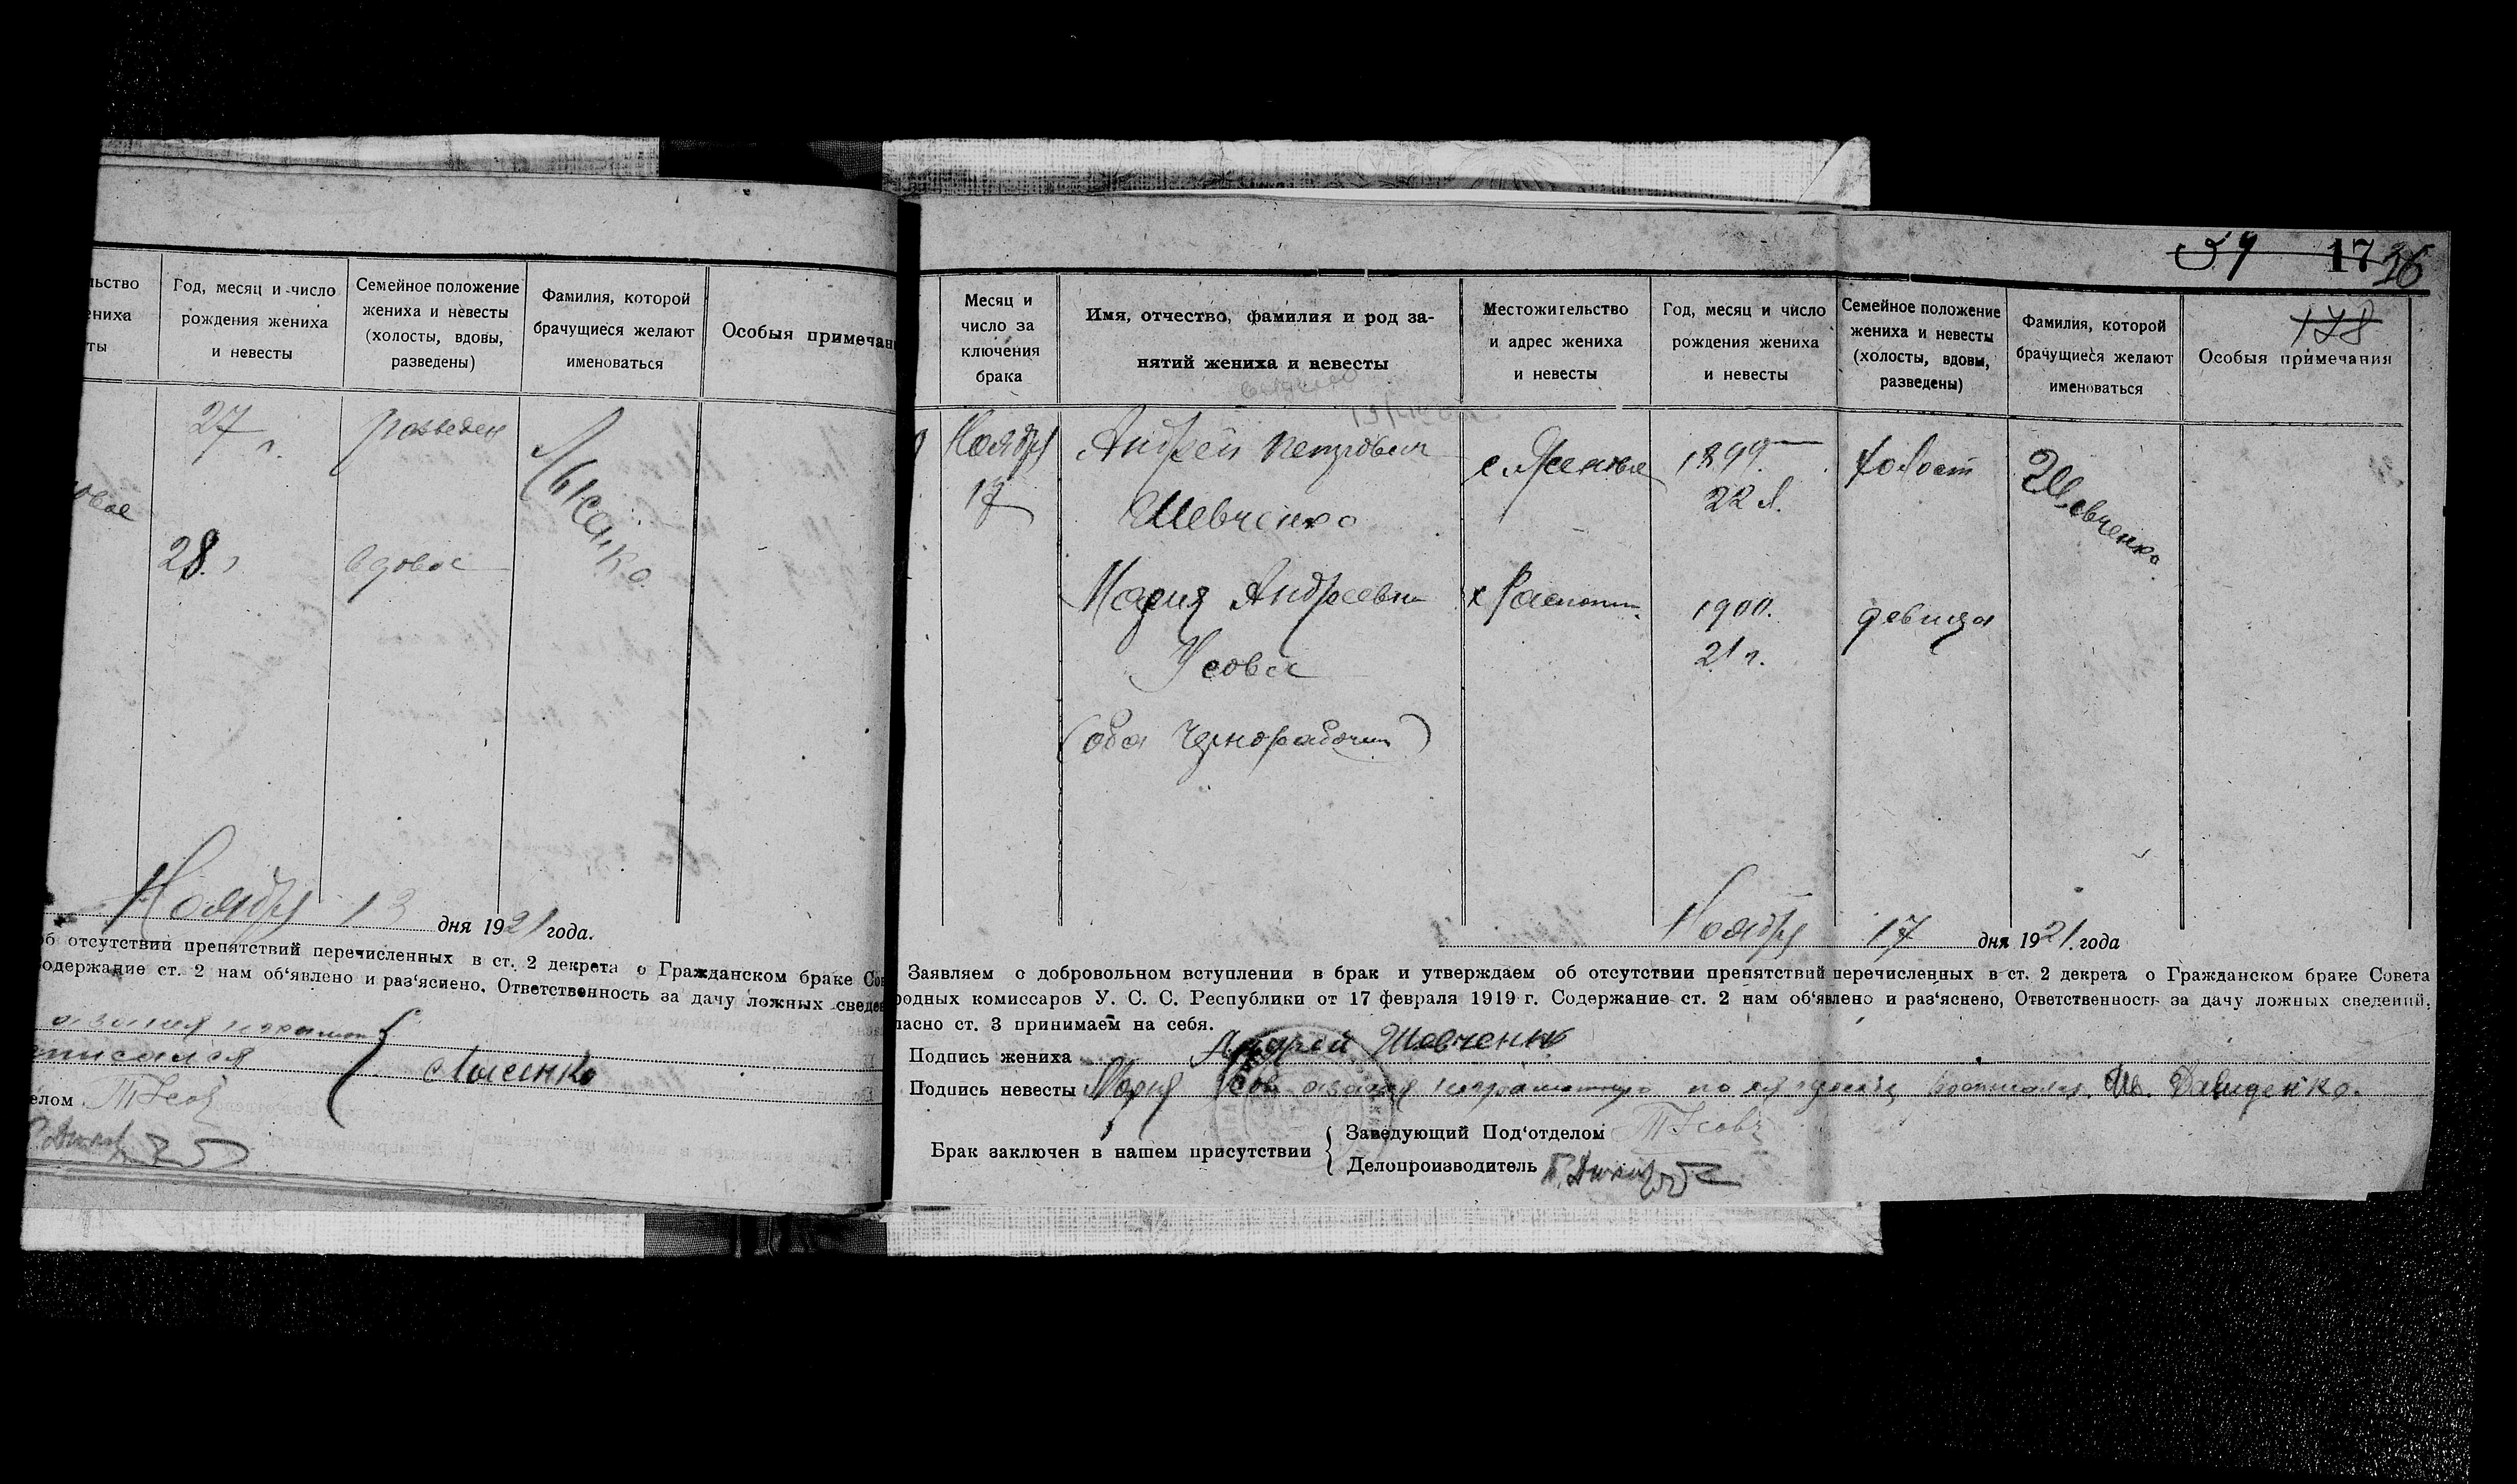 льство
ениха
ты
Год, месяц и число
рождения жениха
и невесты
Семейное положение
жениха и невесты
(холосты, вдовы,
разведены)
Фамилия, которой
брачущиеся желают
именоваться
Особыя примечан
27 г.
розведен
Лысенко
28 г
вдова
Ноября 13 дня 1921 года.
об отсутствии препятствий перечисленных в ст. 2 декрета о Гражданском браке Сов
одержание ст. 2 нам об‘явлено и раз‘яснено, Ответственность за дачу ложных сведен
Лысенко
елом ТУсов
59 17 36
178
Месяц и
число за
ключения
брака
Имя, отчество, фамилия и род за-
нятий жениха и невесты
Местожительство
и адрес жениха
и невесты
Год, месяц и число
рождения жениха
и невесты
Семейное положение
жениха и невесты
(холосты, вдовы,
разведены)
Фамилия, которой
брачущиеся желают
именоваться
Особыя примечания
Ноября
17
Андрей Петрович
Шевченко
с. Ясеновое
1899
22 л.
холост
Шевченко
Мария Андреевна
Усова
1900.
21 г.
девица
(оба Чернорабочии)
Ноября 17 дня 1921 года
Заявляем о добровольном вступлении в брак и утверждаем об отсутствии препятствий перечисленных в ст. 2 декрета о Гражданском браке Совета
родных комиссаров У. С. С. Республики от 17 февраля 1919 г. Содержание ст. 2 нам об‘явлено и раз‘яснено, Ответственность за дачу ложных сведений,
ласно ст. 3 принимаем на себя.
Подпись жениха Андрей Шевченко
Подпись невесты Мария Усова а за нея неграмотную по ея просьбе росписался Ив. Давиденко.
Брак заключен в нашем присутствии
Заведующий Под‘отделом ТУсов
Делопроизводитель